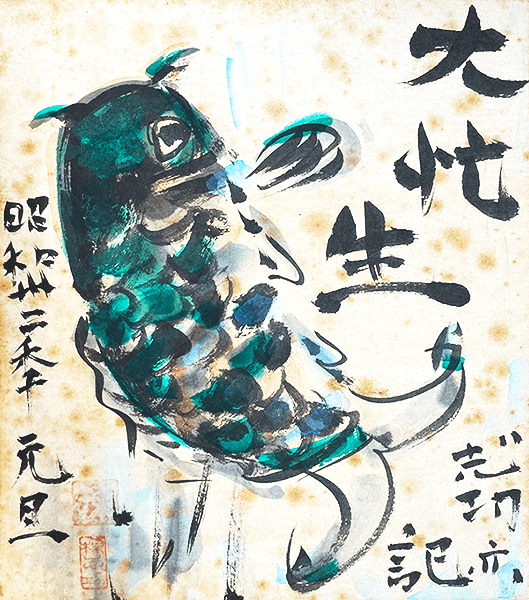 大忙生
志功亦
記
昭和卅二秊 元旦